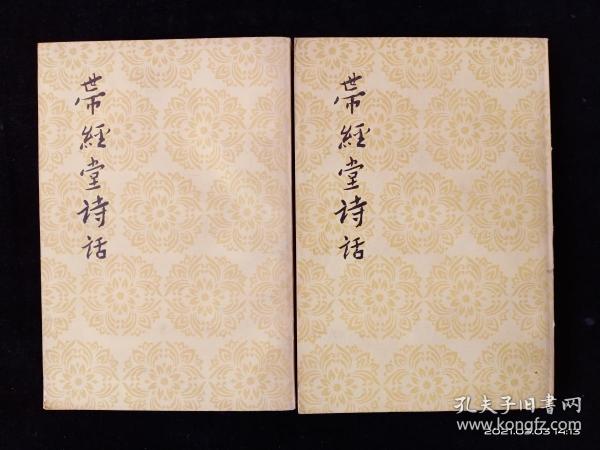 帶經堂詩話
帶經堂詩話
孔夫子旧书网
www.kongfz.com
2021.03.03 14:13